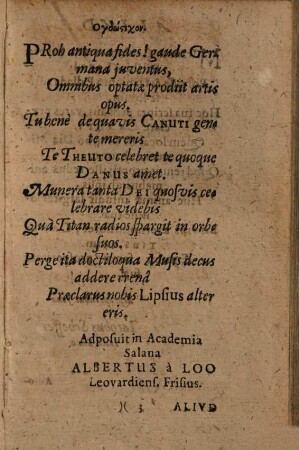 Ογδόςιχον.
PRoh antiqua fides! gaude Ger-
mana juventus,
Omnibus optatæ prodiit artis
opus.
Tu benè de quavis CANUTI gen-
te mereris
Te THEUTO celebret te quoque
DANUS amet.
Munera tanta DEI quosvis ce-
lebrare videbis
Quà Titan radios spargit in orbe
suos.
Perge ita doctiloqua Musis decus
addere
Præclarus nobis Lipsius alter
eris.
Adposuit in Academia
Salana
ALBERTUS à LOO
Leovardiens. Frisius.
)( 3 ALIVD